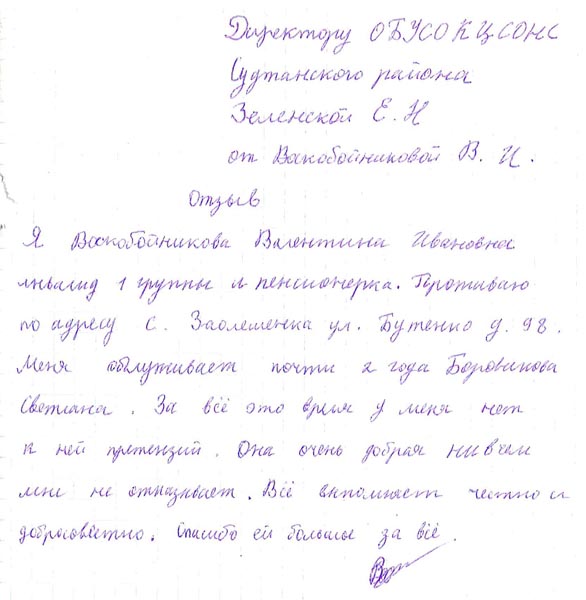 Директору ОБУСО КЦСОНС
Суджанского района
Зеленской Е.Н
от Воскобойниковой В. И.
Отзыв
Я Воскобойникова Валентина Ивановна
инвалид 1 группы и пенсионерка. Проживаю
по адресу с. Заолешенка ул. Бутенко д. 98.
Меня облуживает почти 2 года Боровикова
Светлана. За всё это время у меня нет
к ней претензий. Она очень добрая ни в чем
мне не отказывает. Всё выполняет честно и
добросовестно. Спасибо ей большое за всё.